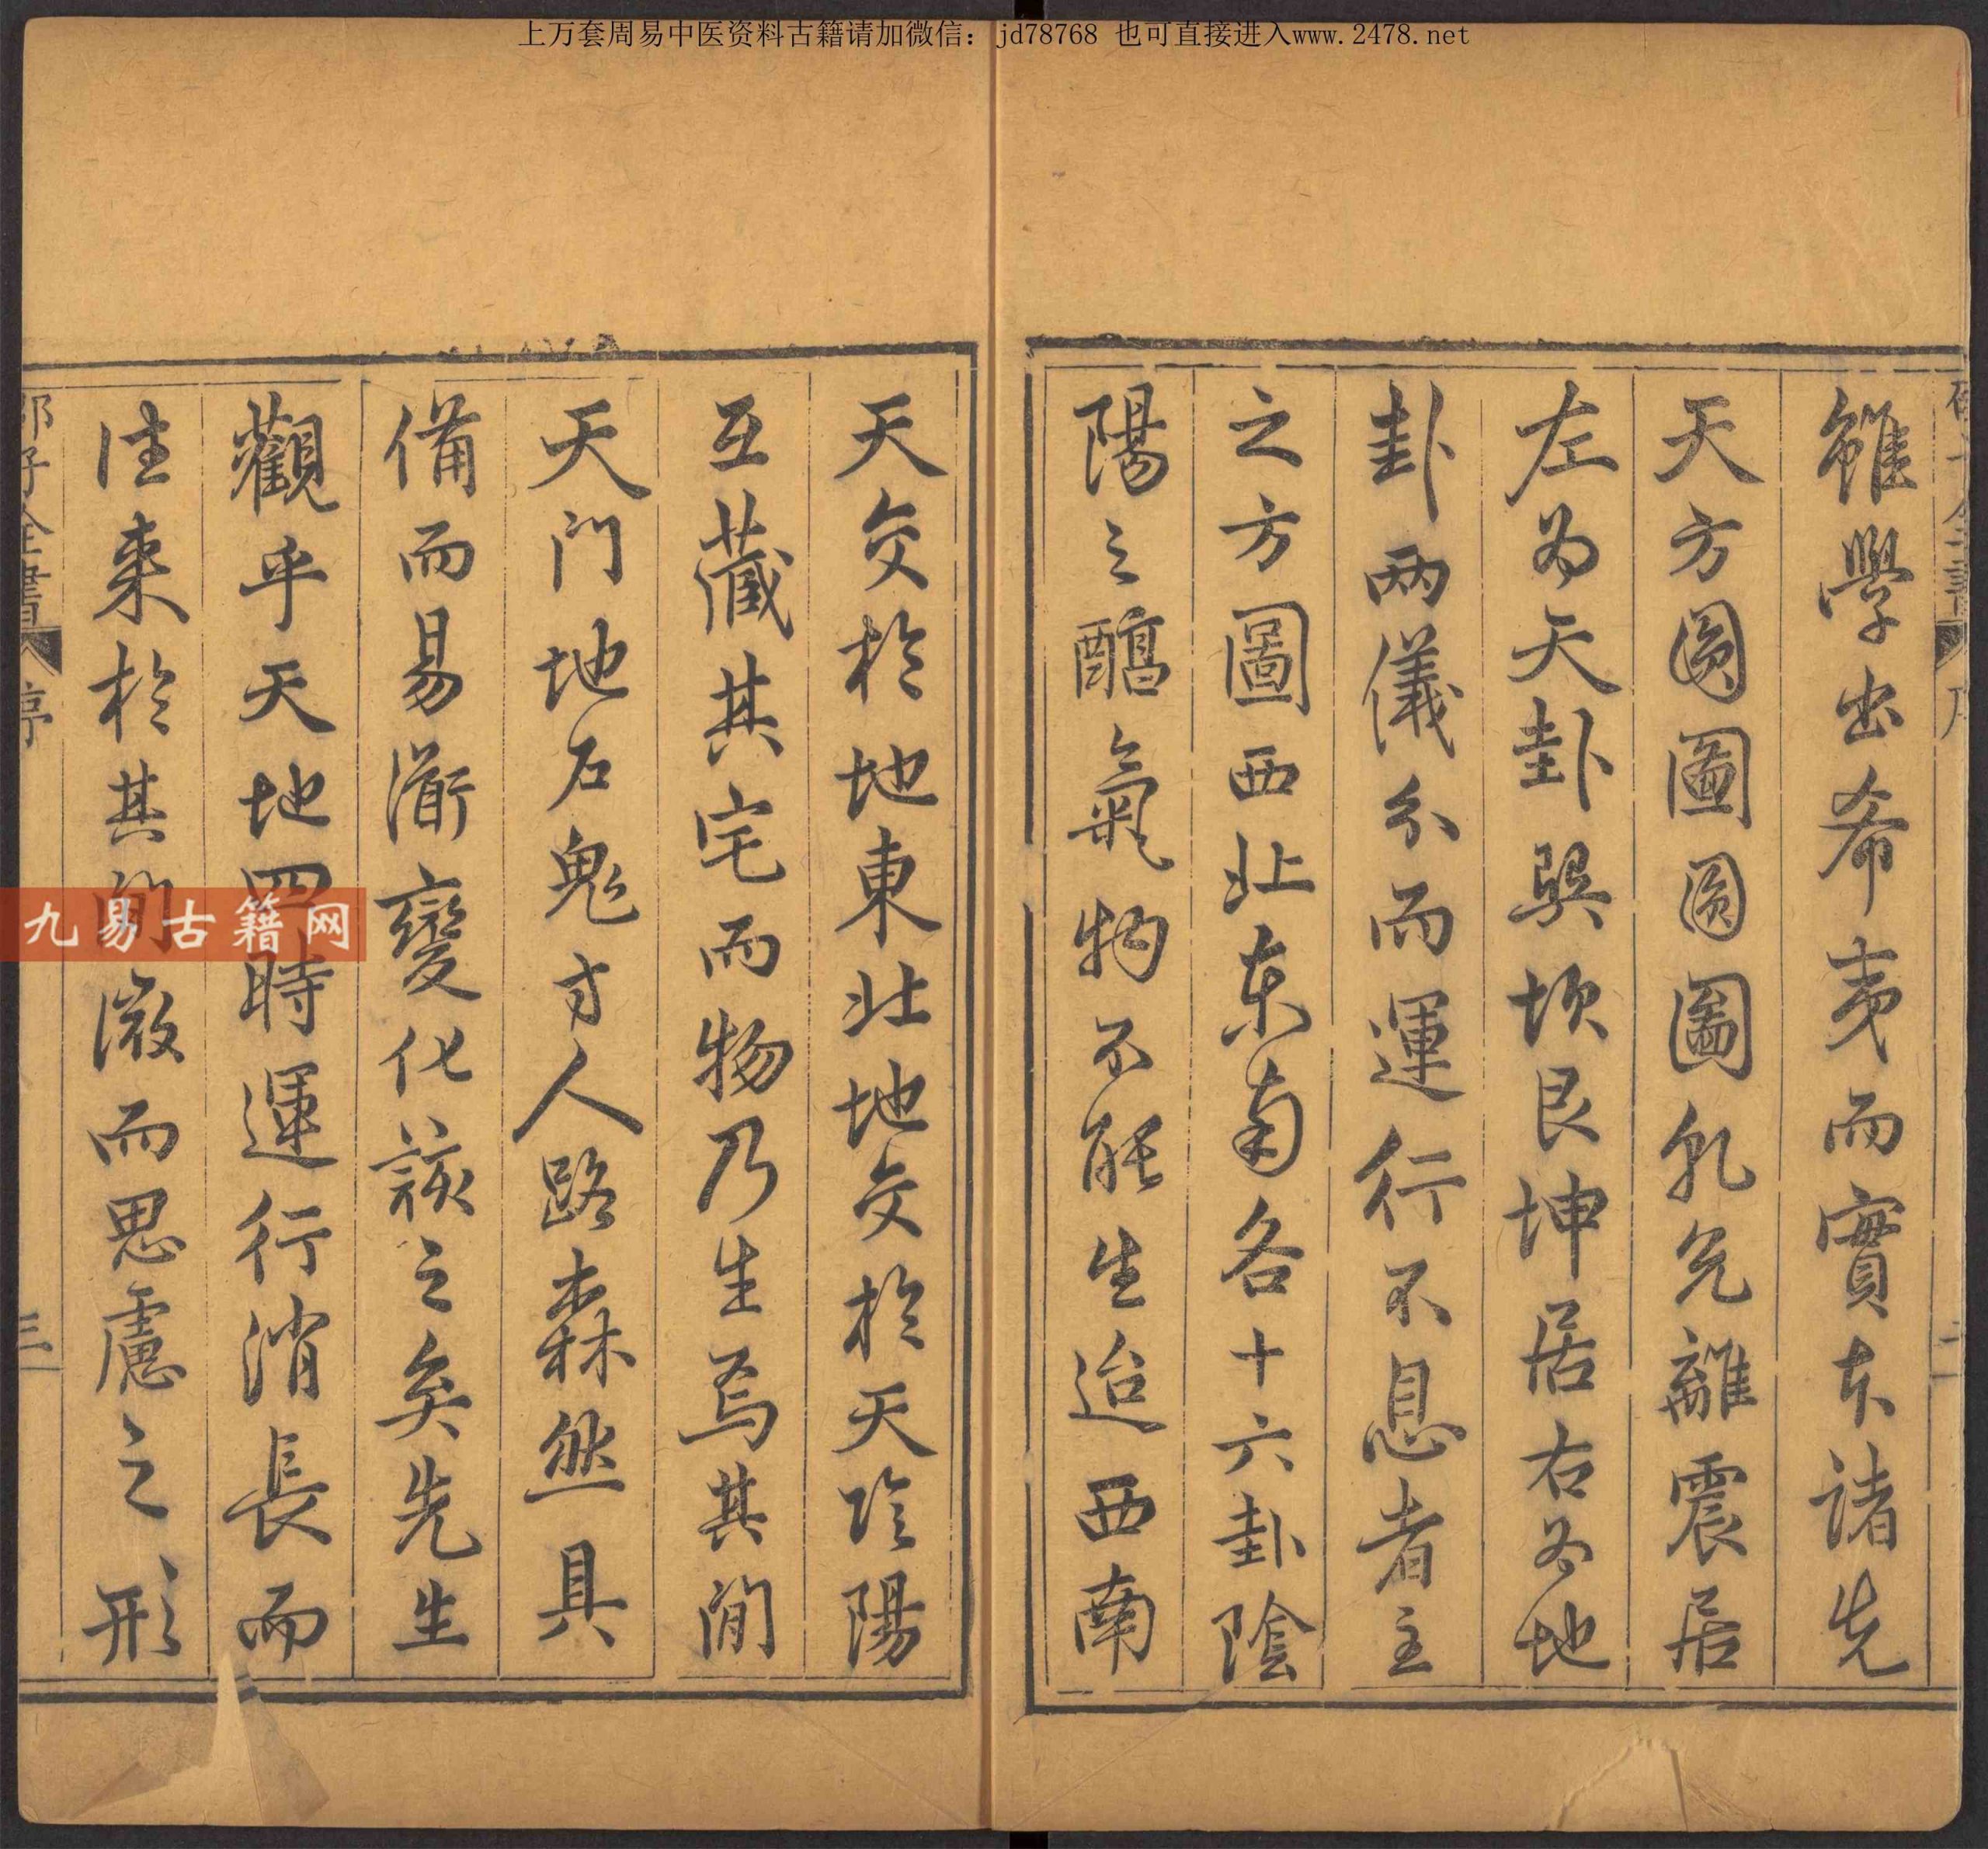 上万套周易中医资料古籍请加微信：jd78768 也可直接进入www.2478.net
雖學出希夷而實本諸先
天方圓圖圓圖乹兊離震居
左為天卦巽坎艮坤居右為地
卦兩儀分而運行不息者主
之方圖西北東南各十六卦陰
陽之醕氣物不能生迨西南
天交於地東北地交於天陰陽
互藏其宅而物乃生焉其間
天門地石鬼方人路森然具
備而易衜變化該之矣先生
觀乎天地四時運行消長而
往來於其間微而思慮之形
邵子全書 序 三
九易古籍网